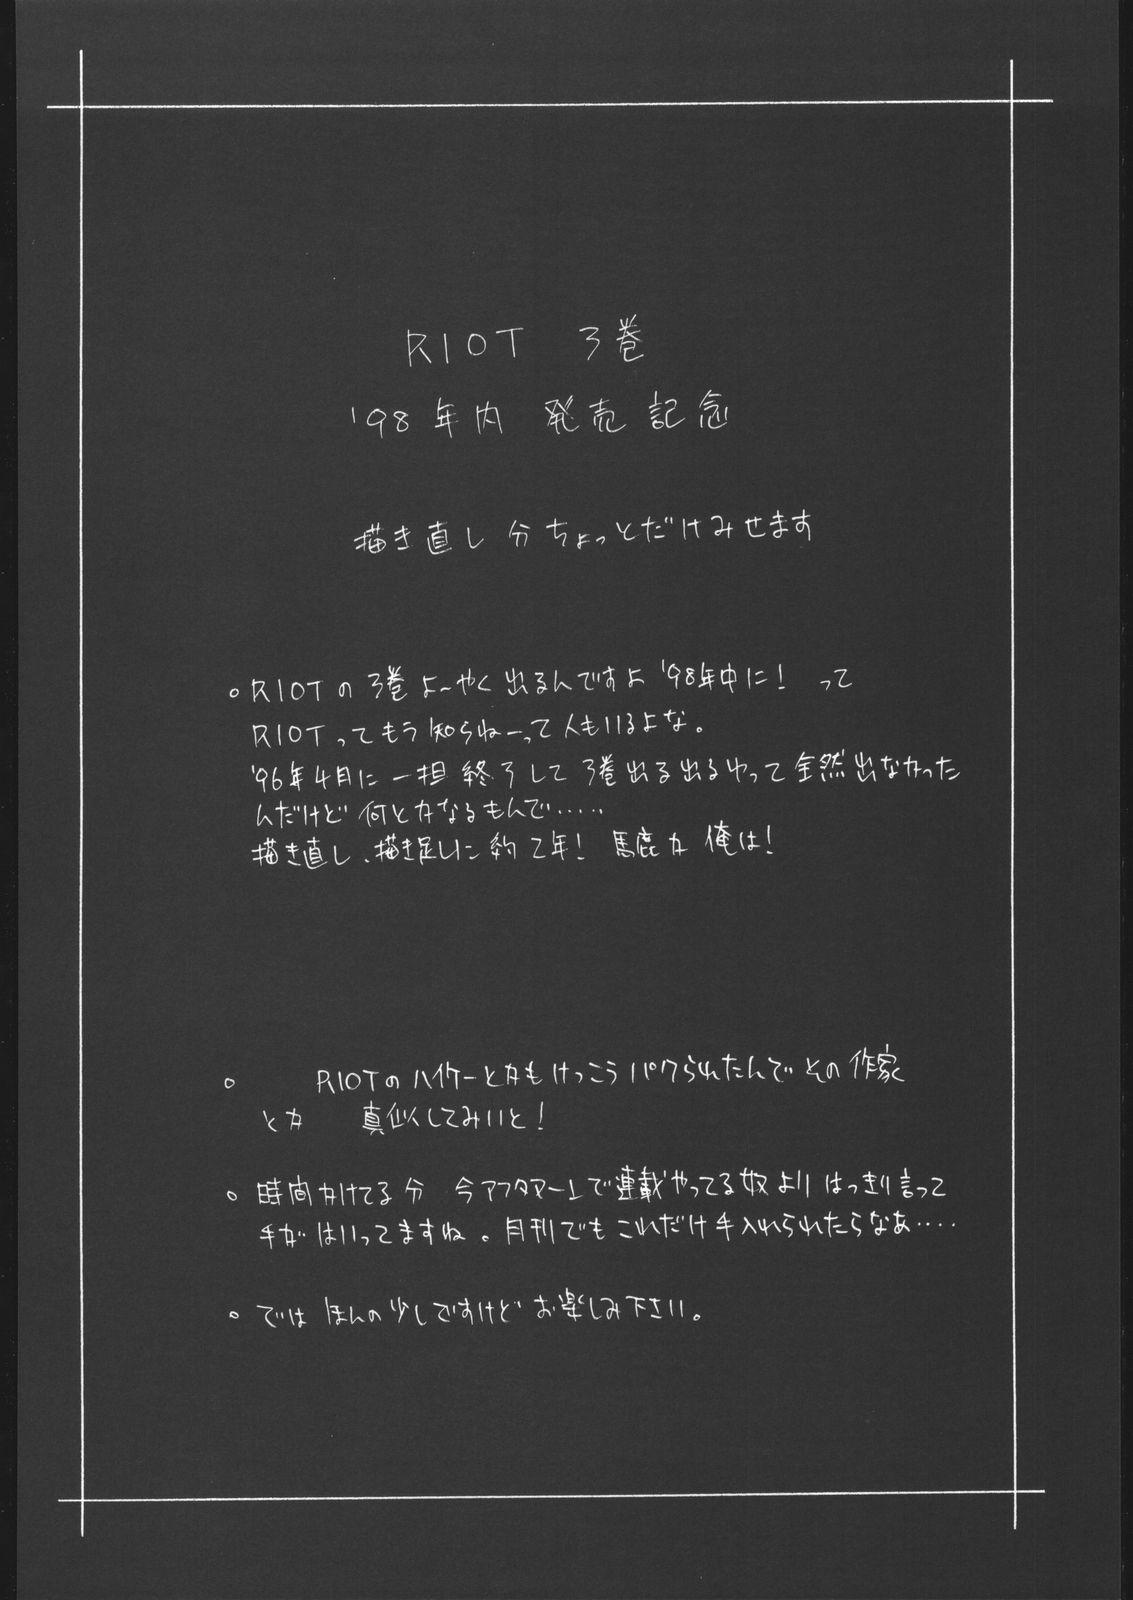 RIOT 3巻
'98年内 発売記念
描き直し分ちょっとだけみせます
。RIOTの3巻よーやく出るんですよ'98年中に! って
RIOTってもう知らねーって人もいるよな。
'96年4月に一担終了して3巻出る出るゆって全然出なかった
んだけど何とかなるもんで.....
描き直し、描き足しに約2年! 馬鹿か俺は!
。 RIOTのハイケーとかもけっこうパクられたんでその作家
とか 真似してみいと!
。時間かけてる分 今アフタヌーンで連載やってる奴よりはっきり言って
手がはいってますね。月刊でもこれだけ手入れられたらなあ....
。では ほんの少しですけど お楽しみ下さい。